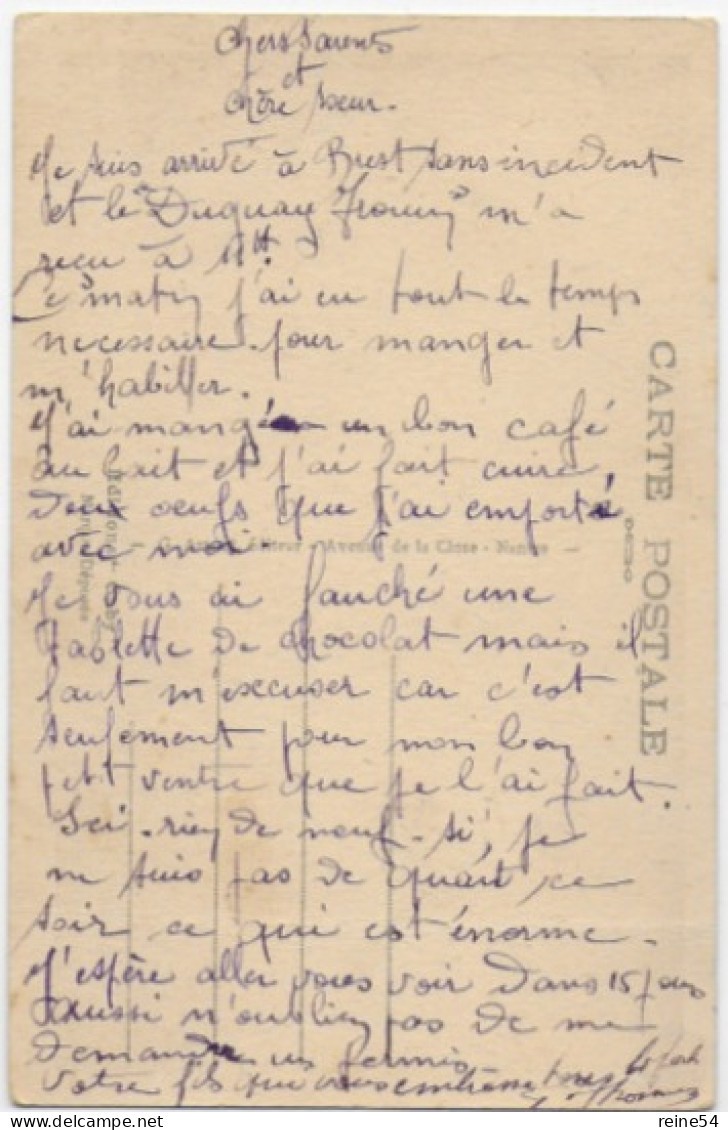 Chers Parents
et
Chère Sœur.
Je suis arrivé à Brest sans incident
et le "Duguay Trouin" m'a
reçu à 11H.
Ce matin j'ai eu tout le temps
necessaire pour manger et
m'habiller.
J'ai mangé un bon café
au lait et j'ai fait cuire
deux oeufs que j'ai emporté
avec moi.
Je vous ai fauché une
tablette de chocolat mais il
faut m'excuser car c'est
seulement pour mon bon
petit ventre que je l'ai fait.
Ici rien de neuf - si, je
ne suis pas de quart ce
soir ce qui est énorme.
J'espère aller vous voir dans 15 jours
Aussi n'oubliez pas de me
demander un permis
Votre fils qui vous embrasse
CARTE POSTALE
Éditeur - Avenue de la Close - Nantes